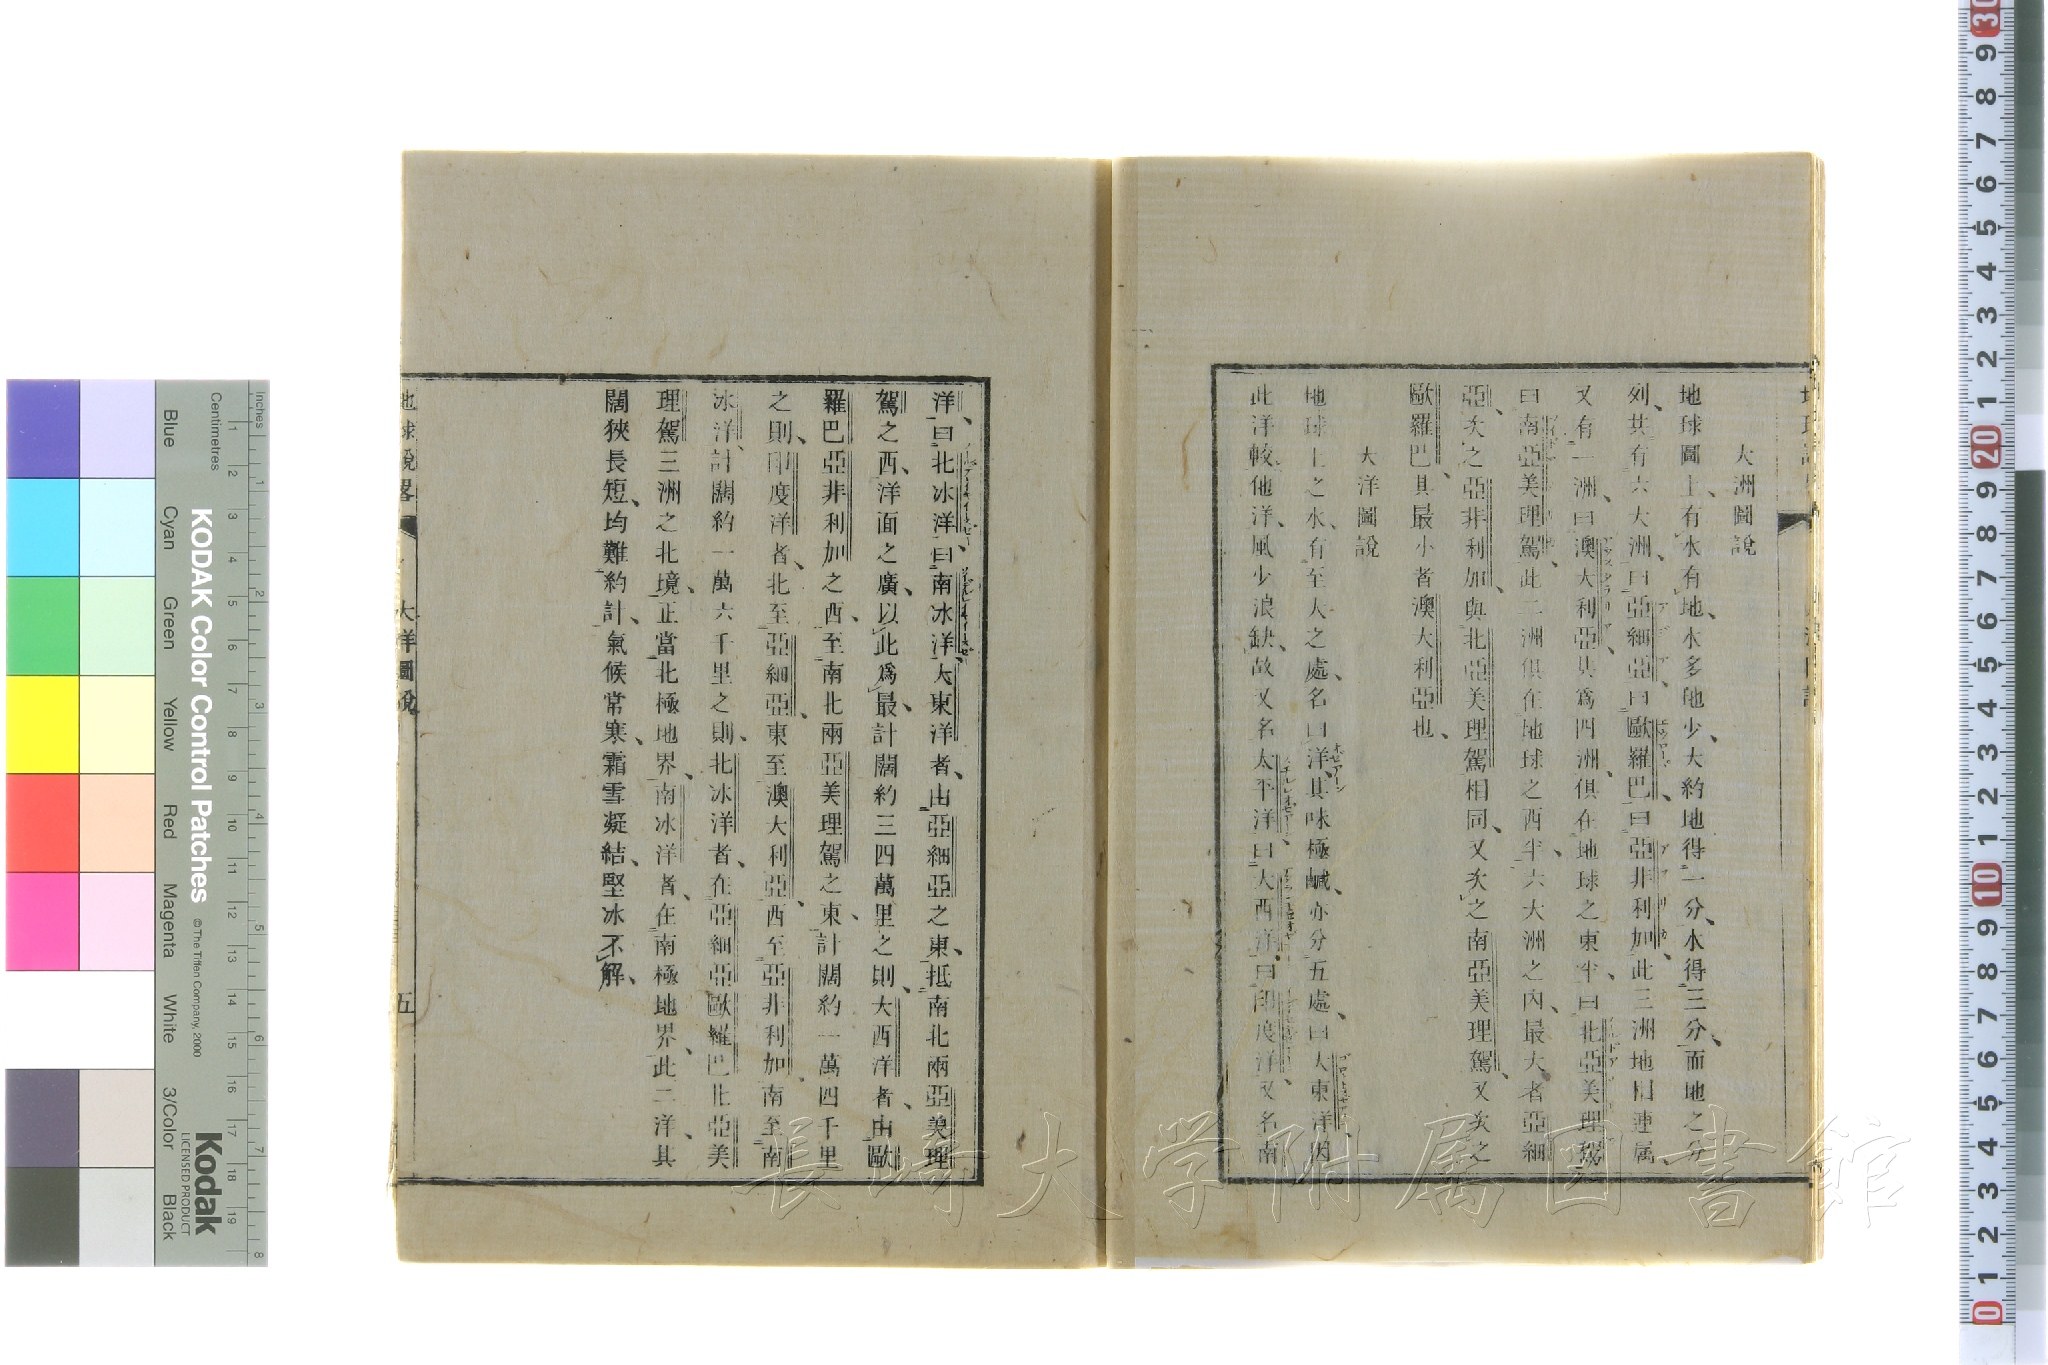 大洲圖說
地球圖上、有水有地、水多地少、大約地得一分、水得三分、而地之分
列、共有六大洲、曰亞細亞、曰歐羅巴、曰亞非利加、此三洲地相連属、
又有一洲、曰澳大利亞、共爲四洲、俱在地球之東半、曰北亞美理駕、
曰南亞美理駕、此二洲俱在地球之西半、六大洲之內、最大者亞細
亞、次之亞非利加、與北亞美理駕相同、又次之南亞美理駕、又次之
歐羅巴、其最小者澳大利亞也、
大洋圖說
地球上之水、有至大之處、名曰洋、其味極鹹、亦分五處、曰大東洋、因
此洋較他洋、風少浪缺、故又名太平洋、曰大西洋、曰印度洋、又名南
洋、曰北冰洋、曰南冰洋、大東洋者、由亞細亞之東、抵南北兩亞美理
駕之西、洋面之廣、以此爲最、計闊約三四萬里之則、大西洋者、由歐
羅巴亞非利加之西、至南北兩亞美理駕之東、計闊約一萬四千里
之則、印度洋者、北至亞細亞、東至澳大利亞、西至亞非利加、南至南
冰洋、計闊約一萬六千里之則、北冰洋者、在亞細亞歐羅巴北亞美
理駕三洲之北境、正當北極地界、南冰洋者、在南極地界、此二洋、其
闊狹長短、均難約計、氣候常寒、霜雪凝結、堅冰不解、
地球說畧
大洋圖說
五
長崎大学附属図書館
KODAK Color Control Patches
© The Tiffen Company, 2000
Kodak
LICENSED PRODUCT
Inches
Centimetres
Blue
Cyan
Green
Yellow
Red
Magenta
White
3/Color
Black